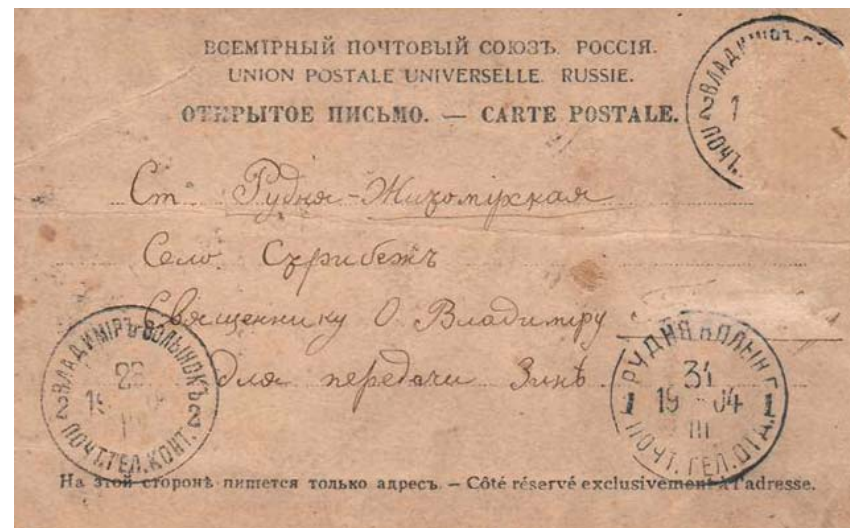 ВСЕМІРНЫЙ ПОЧТОВЫЙ СОЮЗЪ. РОССІЯ.
UNION POSTALE UNIVERSELLE. RUSSIE.
ОТКРЫТОЕ ПИСЬМО. — CARTE POSTALE.
ВЛАДИМІРЪ
2 ПОЧТ.
1
Ст. Рудня-
Село
Священнику О. Владиміру
для передачи Зинѣ
ВЛАДИМІРЪ-ВОЛЫНСКЪ
19
2 ПОЧТ.ТЕЛ.КОНТ. 2
РУДНЯ ВОЛЫН.Г.
31
19 04
III
1 ПОЧТ. ТЕЛ.ОТД. 1
На этой сторонѣ пишется только адресъ. – Côté réservé exclusivement à l'adresse.